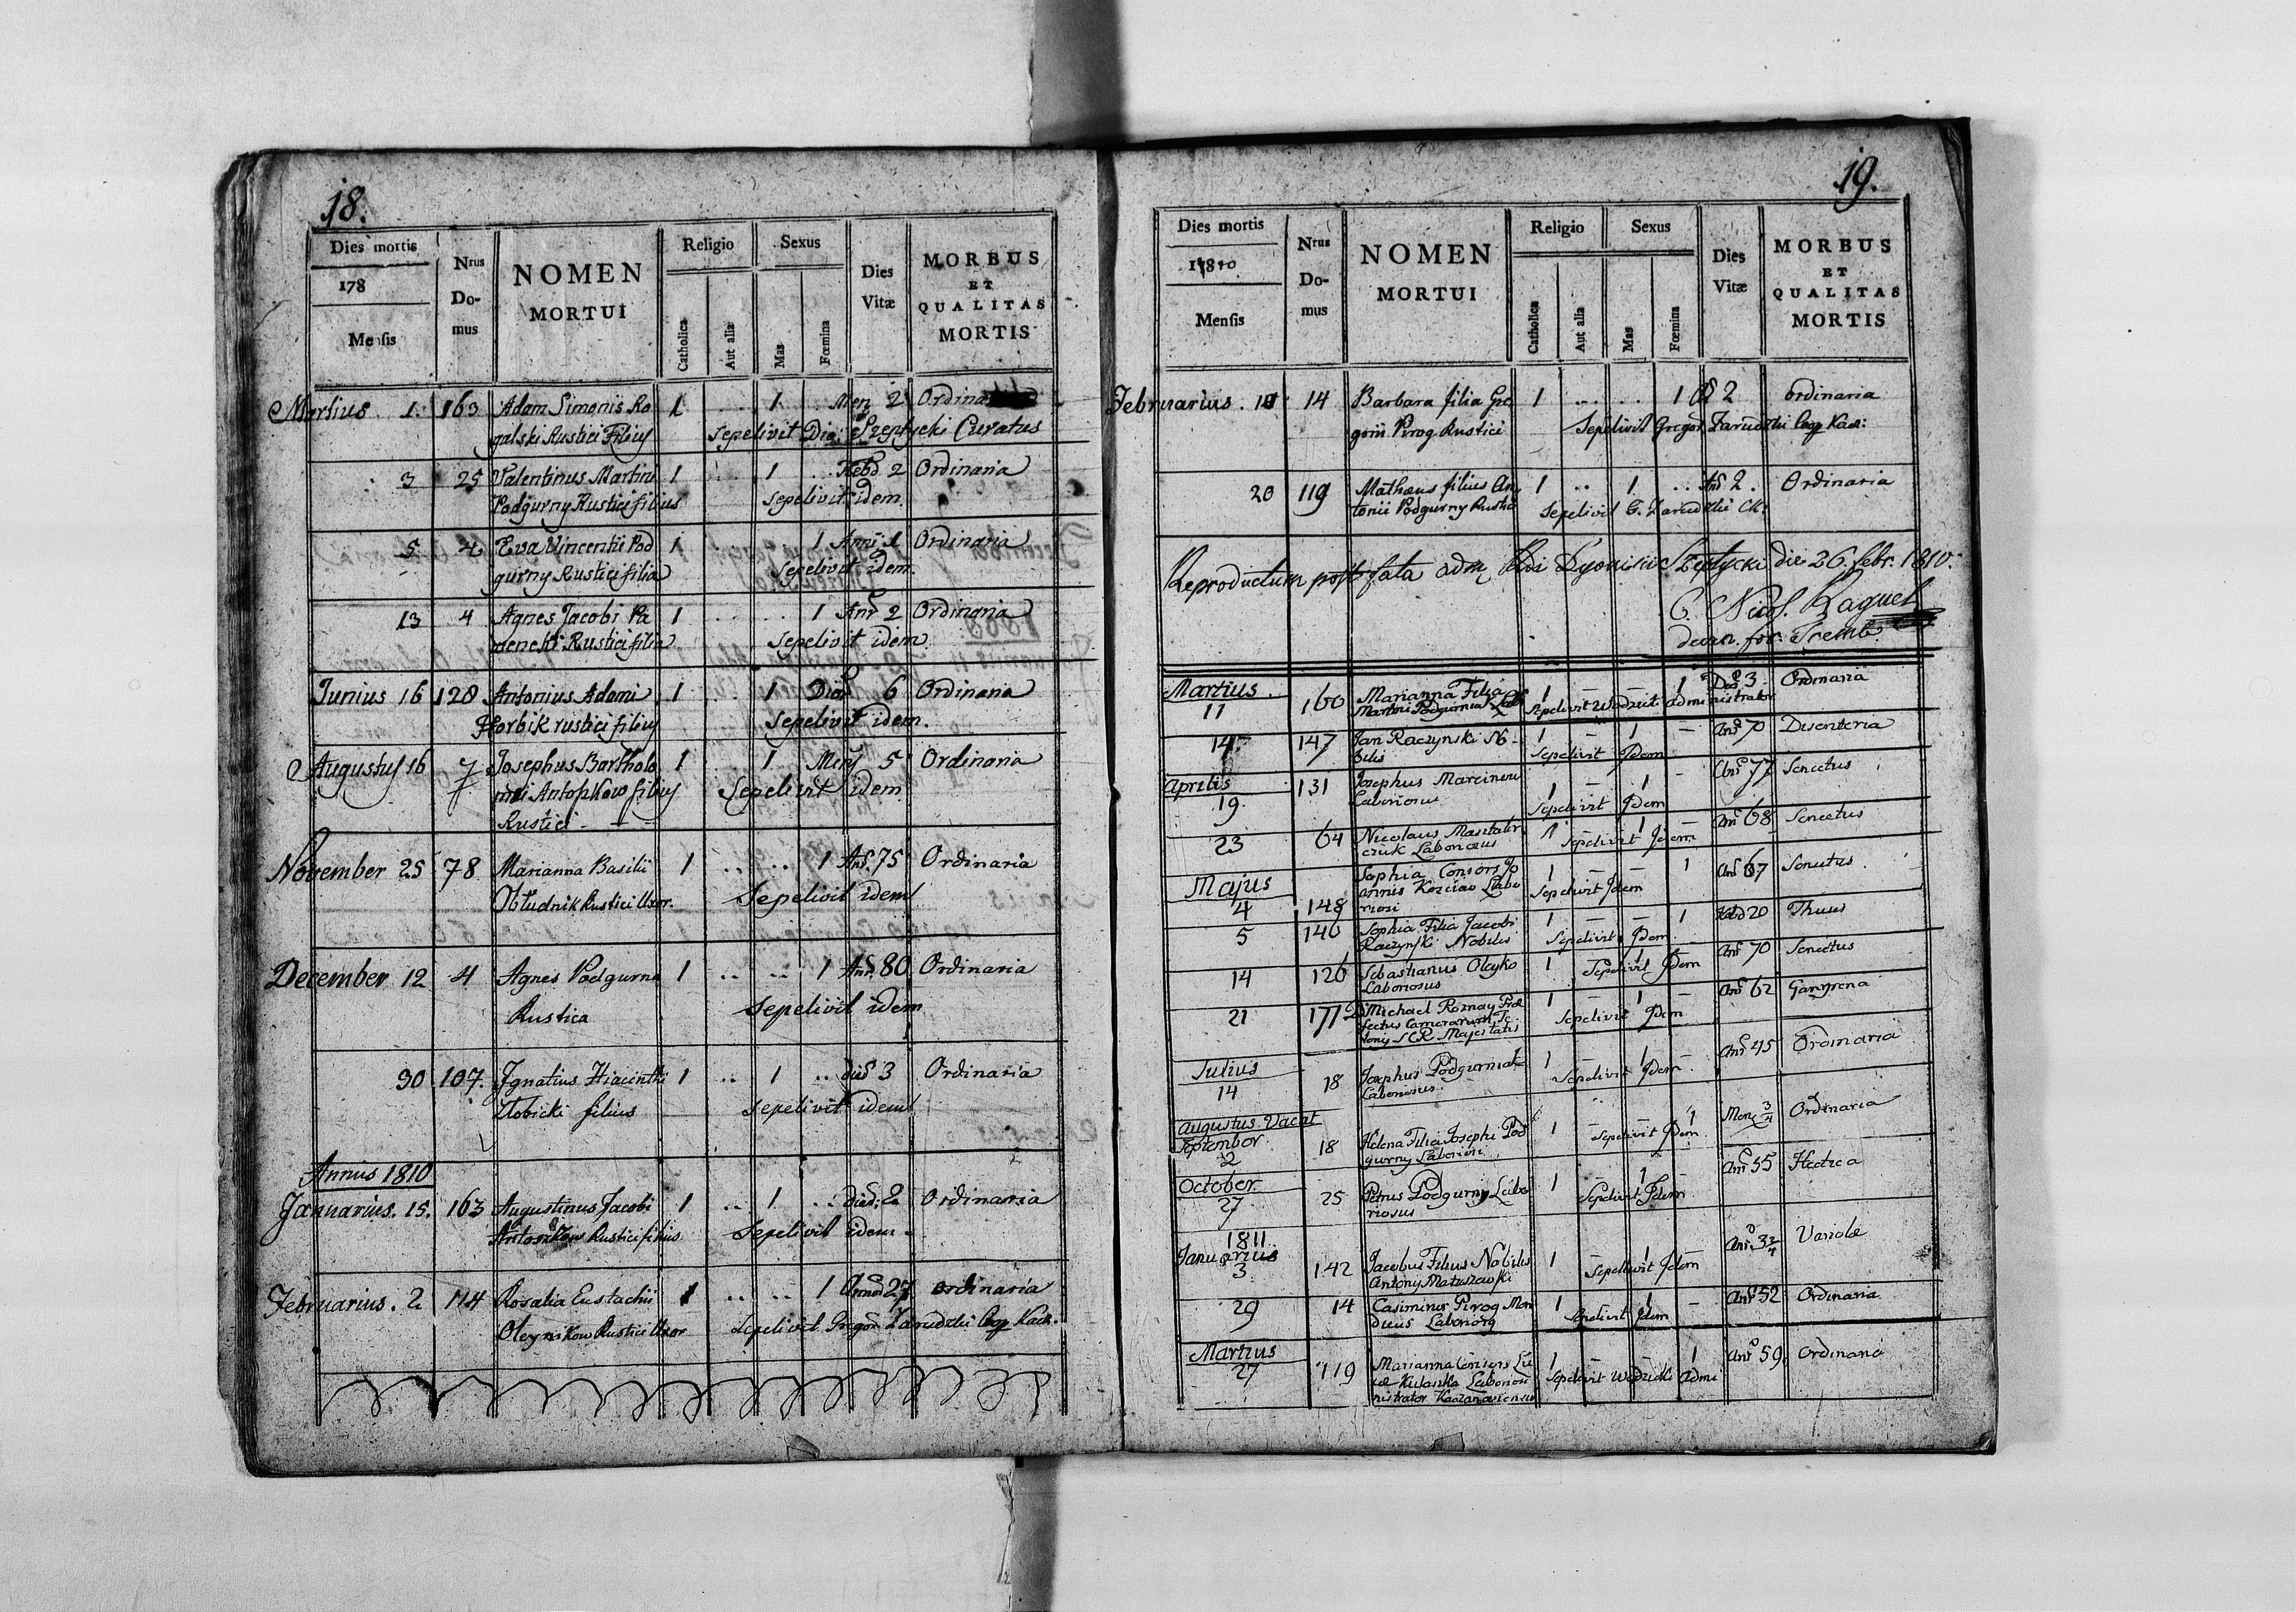 18.
Dies mortis
178
Mensis
Nrus Do-mus
NOMEN MORTUI
Religio
Catholica
Aut alia
Sexus
Mas
Fœmina
Dies Vitæ
MORBUS ET QUALITAS MORTIS
Martius 1. 163 Adam Simonis Ro 1 .. 1 .. Men 2 Ordinaria
galski Rustici Filius Sepelivit Szeptycki Curatus
3 25 Valentinus Martini 1 .. 1 .. Hebd 2 Ordinaria
Podgurny Rustici filius Sepelivit idem.
5 4 Eva Vincentii Pod 1 1 Anni 1 Ordinaria
gurny Rustici filia Sepelivit idem.
13 4 Agnes Jacobi Pa 1 .. .. 1 Anr 2 Ordinaria
Rustici filia Sepelivit idem
Junius 16 128 Antonius Adami 1 .. 1 Dier 6 Ordinaria
Horbik rustici filius Sepelivit idem.
Augustus 16 7 Josephus Bartholo 1 1 Mens 5 Ordinaria
mei Antoszkow filius Sepelivit idem
Rustici
November 25 78 Marianna Basilii 1 .. .. 1 Anr. 75 Ordinaria
Obłudnik Rustici Uxor. Sepelivit idem
December 12 4 Agnes Podgurna 1 .. .. 1 Anr. 80 Ordinaria
Rustica Sepelivit idem
30 107. Ignatius Hiacinthi 1 .. 1 .. dier 3 Ordinaria
Złobicki filius Sepelivit idem
Annus 1810
Januarius. 15. 163 Augustinus Jacobi 1 .. 1 .. dier: 2 Ordinaria
Antoszkow Rustici filius Sepelivit idem.
Februarius. 2 114 Rosalia Eustachii 1 .. .. 1 Annor 27 ordinaria
Oleynikow Rustici Uxor Sepelivit Gregor Zarudzki Coop Kacz.
19.
Dies mortis
1810
Mensis
Nrus Do-mus
NOMEN MORTUI
Religio
Catholica
Aut alia
Sexus
Mas
Fœmina
Dies Vitæ
MORBUS ET QUALITAS MORTIS
Februarius. 14 Barbara filia Gre 1 .. .. 1 2 ordinaria
gorii Pirog Rustici Sepelivit Gregor Zarudzki Coop Kacz:
20 119 Mathæus filius An 1 .. 1 .. Anr 2. Ordinaria
tonii Podgurny Rustici Sepelivit G. Zarudzki CK.
Reproductum post fata adm Rdi Dyonisii Szeptycki die 26. febr. 1810.
Nicol. Raguel
decan. for. Tremb.
Martius. 11 160 Marianna Filia 1 – – 1 3 Ordinaria
Martini Podgurniak Lab Sepelivit Wodzicki administrator
14 147 Jan Raczynski No 1 – 1 – Anr 70 Disenteria
bilis Sepelivit Idem
Aprilis 19 131 Josephus Marcinow 1 – 1 – Anr 77 Senectus
Laboriosus Sepelivit Idem
23 64 Nicolaus Masztaler 1 – 1 – Anr 68 Senectus
czuk Laboriosus Sepelivit Idem
Majus 4 148 Sophia Consors Jo 1 – – 1 Anr 67 Senectus
annis Kozciow Labo Sepelivit Idem
riosi
5 146 Sophia Filia Jacobi 1 – – 1 Hebd 20 Thusis
Raczynski Nobilis Sepelivit Idem
14 126 Sebastianus Oleyko 1 – 1 – Anr 70 Senectus
Laboriosus Sepelivit Idem
21 177 Michael Romay Præ 1 – 1 – Anr 62 Gangrena
fectus Camerarum Sepelivit Idem
Majestatis
Julius 14 18 Josephus Podgurniak 1 – 1 – Anr 45 Ordinaria
Laboriosus Sepelivit Idem
Augustus. Vacat
September 2 18 Helena Filia Josephi Pod 1 – – 1 Men 3/4 Ordinaria
gurny Laboriosi Sepelivit Idem
October 27 25 Petrus Podgurny Labo 1 – 1 – Anr 55 Hectica
riosus Sepelivit Idem
1811.
Januarius 3 142 Jacobus Filius Nobilis 1 – 1 – Anr. 3 Variolæ
Antony Matuszewski Sepelivit Idem
29 14 Casimirus Pirog Men 1 – 1 – Anr 52 Ordinaria
dicus Laboriosus Sepelivit Idem
Martius 27 119 Marianna Consors Lu 1 – – 1 Anr 59 Ordinaria
cæ Kulaska Laboriosi Sepelivit Wodzicki Admi
nistrator Kaczanoviensis